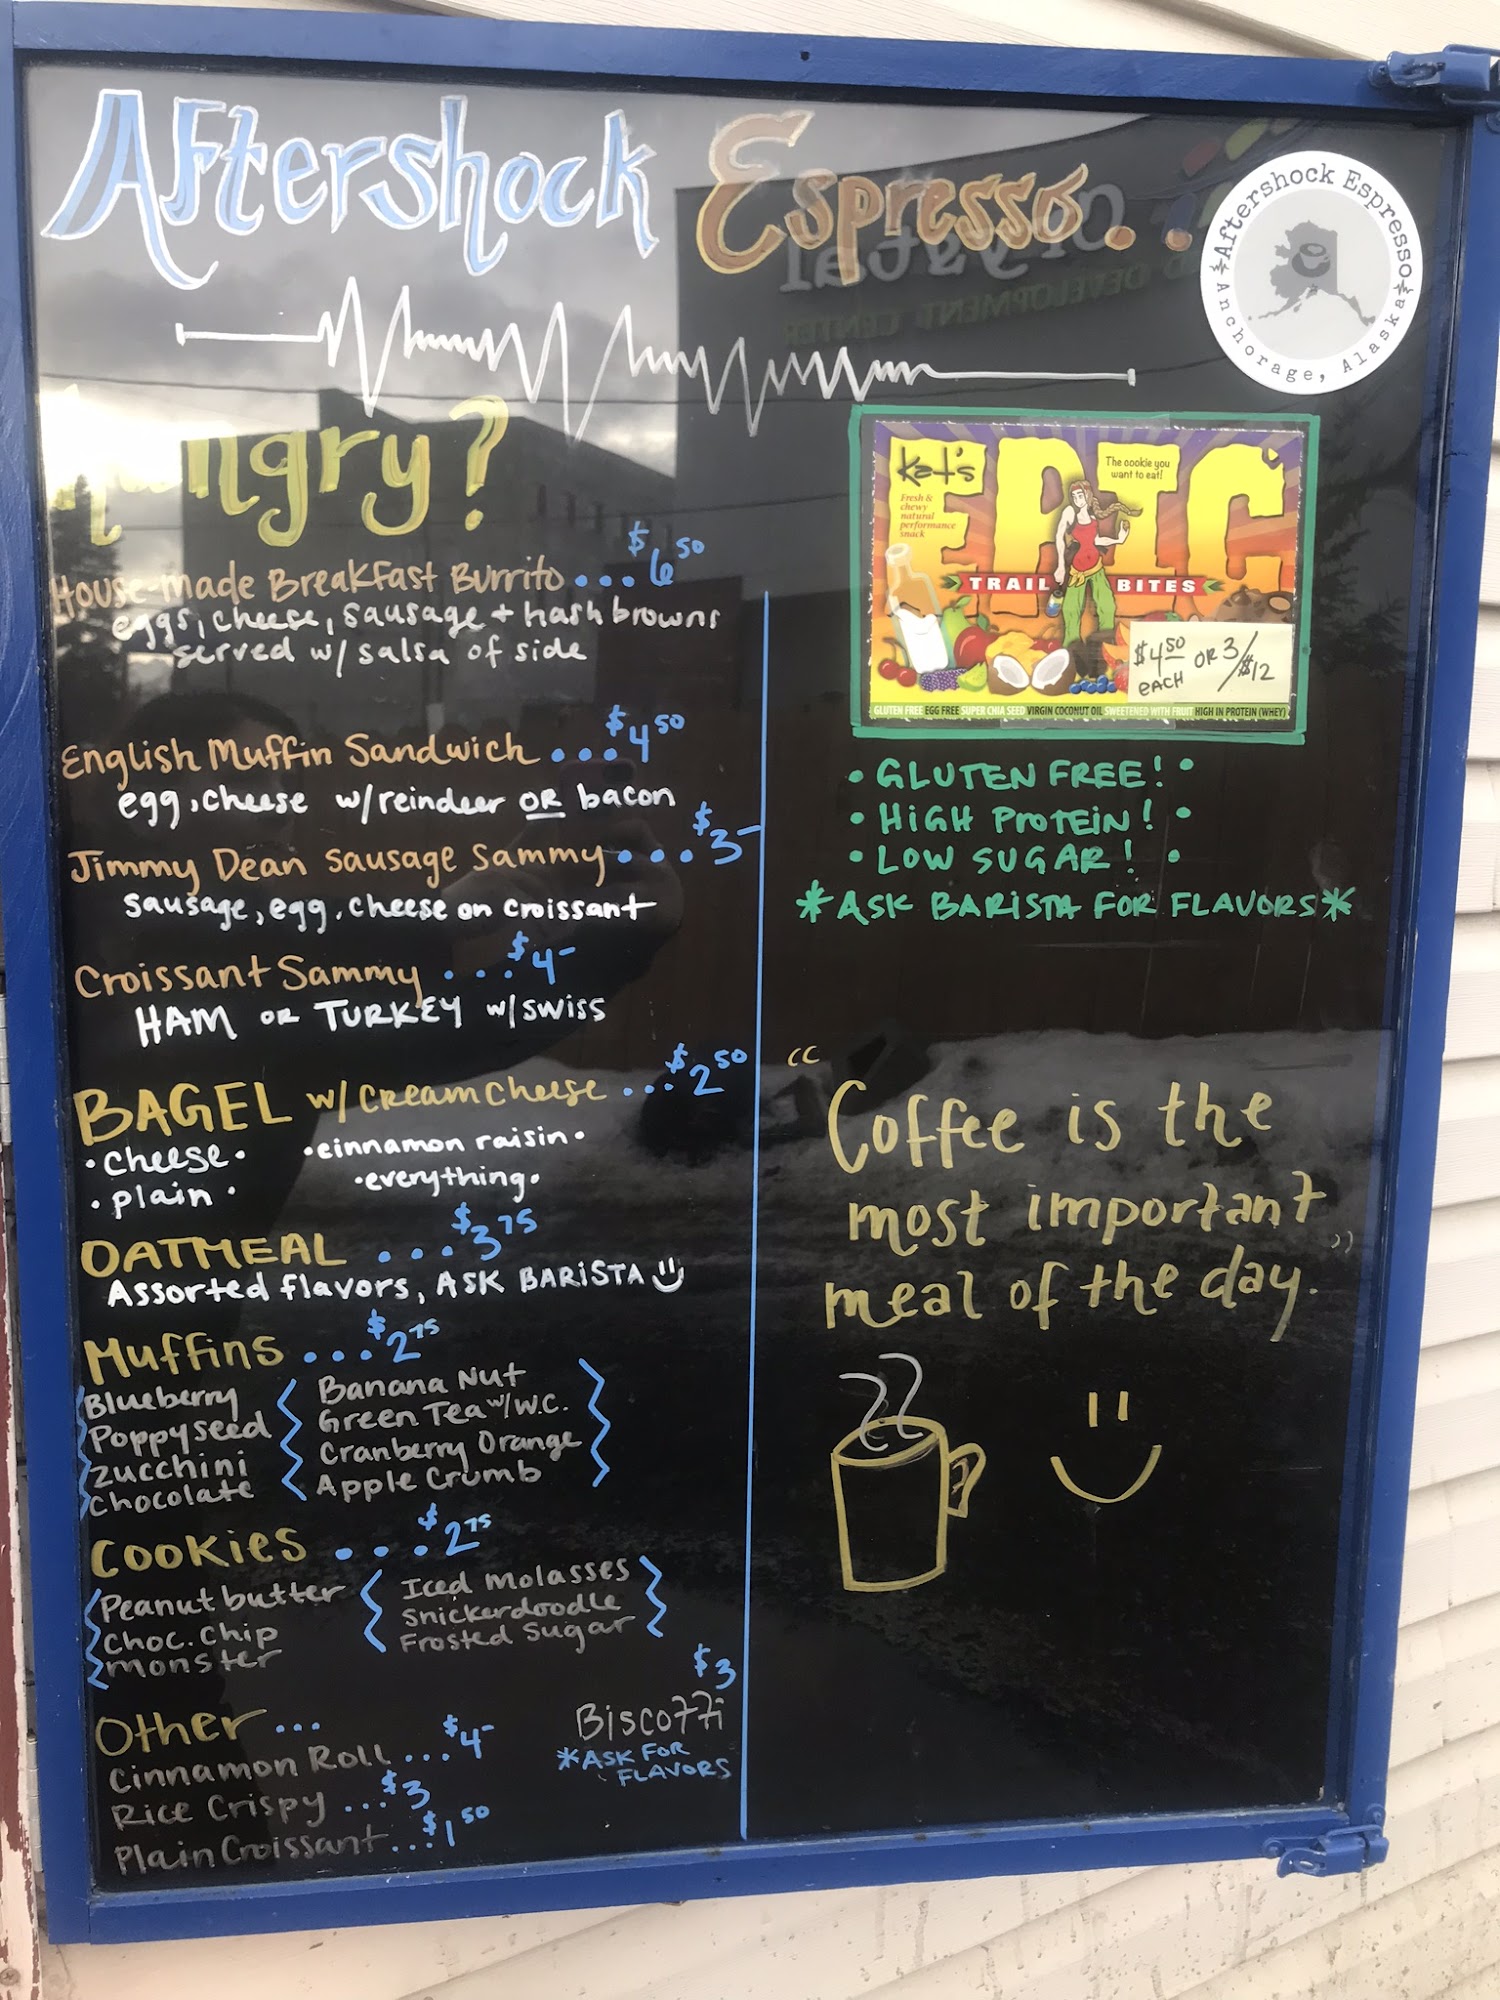 Aftershock Espresso...
Aftershock Espresso
Anchorage, Alaska
Hungry?
House-made Breakfast Burrito ... $6 50
eggs, cheese, sausage + hash browns
served w/ salsa of side
English Muffin Sandwich ... $4 50
egg, cheese w/ reindeer OR bacon
Jimmy Dean Sausage Sammy ... $3-
sausage, egg, cheese on croissant
Croissant Sammy ... $4-
HAM OR TURKEY w/ SWISS
BAGEL w/ cream cheese ... $2 50
• cheese • • cinnamon raisin •
• plain • • everything •
OATMEAL ... $3 75
Assorted flavors, ASK BARISTA
Muffins ... $2 75
Blueberry
Poppyseed
Zucchini
Chocolate
Banana Nut
Green Tea w/ W.C.
Cranberry Orange
Apple Crumb
Cookies ... $2 75
Peanut butter
Choc. Chip
monster
Iced Molasses
Snickerdoodle
Frosted Sugar
Other ...
Cinnamon Roll ... $4-
Rice Crispy ... $3
Plain Croissant ... $1 50
$3
Biscotti
*ASK FOR
FLAVORS
Kat's
EPIC
The cookie you
want to eat!
Fresh &
chewy
natural
performance
snack
TRAIL BITES
$4 50
EACH OR 3/$12
GLUTEN FREE EGG FREE SUPER CHIA SEED VIRGIN COCONUT OIL SWEETENED WITH FRUIT HIGH IN PROTEIN (WHEY)
• GLUTEN FREE! •
• HIGH PROTEIN! •
• LOW SUGAR! •
*ASK BARISTA FOR FLAVORS*
"Coffee is the
most important
meal of the day."